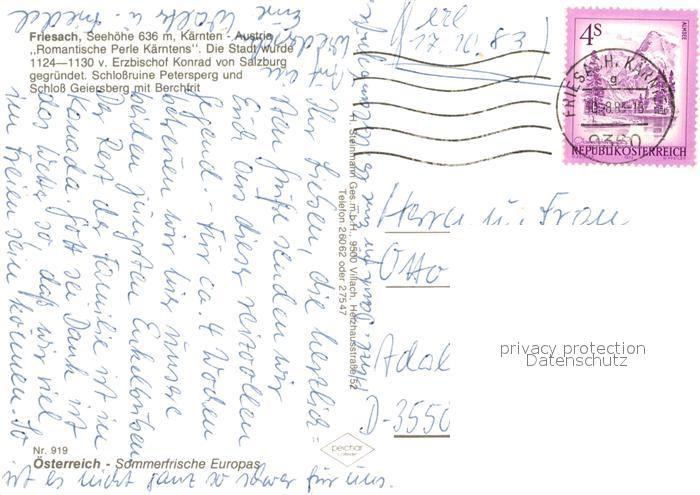 Friesach, Seehöhe 636 m, Kärnten - Austria
„Romantische Perle Kärntens". Die Stadt wurde
1124—1130 v. Erzbischof Konrad von Salzburg
gegründet. Schloßruine Petersperg und
Schloß Geiersberg mit Berchfrit
erl
17.10.83
4S
FRIESACH, KÄRNTEN
9360
REPUBLIK ÖSTERREICH
Ihr Lieben, die herzlich
sten Grüße senden wir
Euch aus dieser reizvollen
Gegend. - Für ca. 4 Wochen
betreuen wir hier unsere
beiden jüngsten Enkelbuben
Der Rest der Familie ist in
Kanada. Gott sei Dank ist
das Wetter so, daß wir viel
im Freien sein können. So
ist es nicht ganz so schwer für uns.
H. Steinmann Ges.m.b.H. 9500 Villach, Heizhausstraße 52
Telefon 26062 oder 27547
Herrn u. Frau
Otto
Adal
D-3550
privacy protection
Datenschutz
Nr. 919
Österreich - Sommerfrische Europas